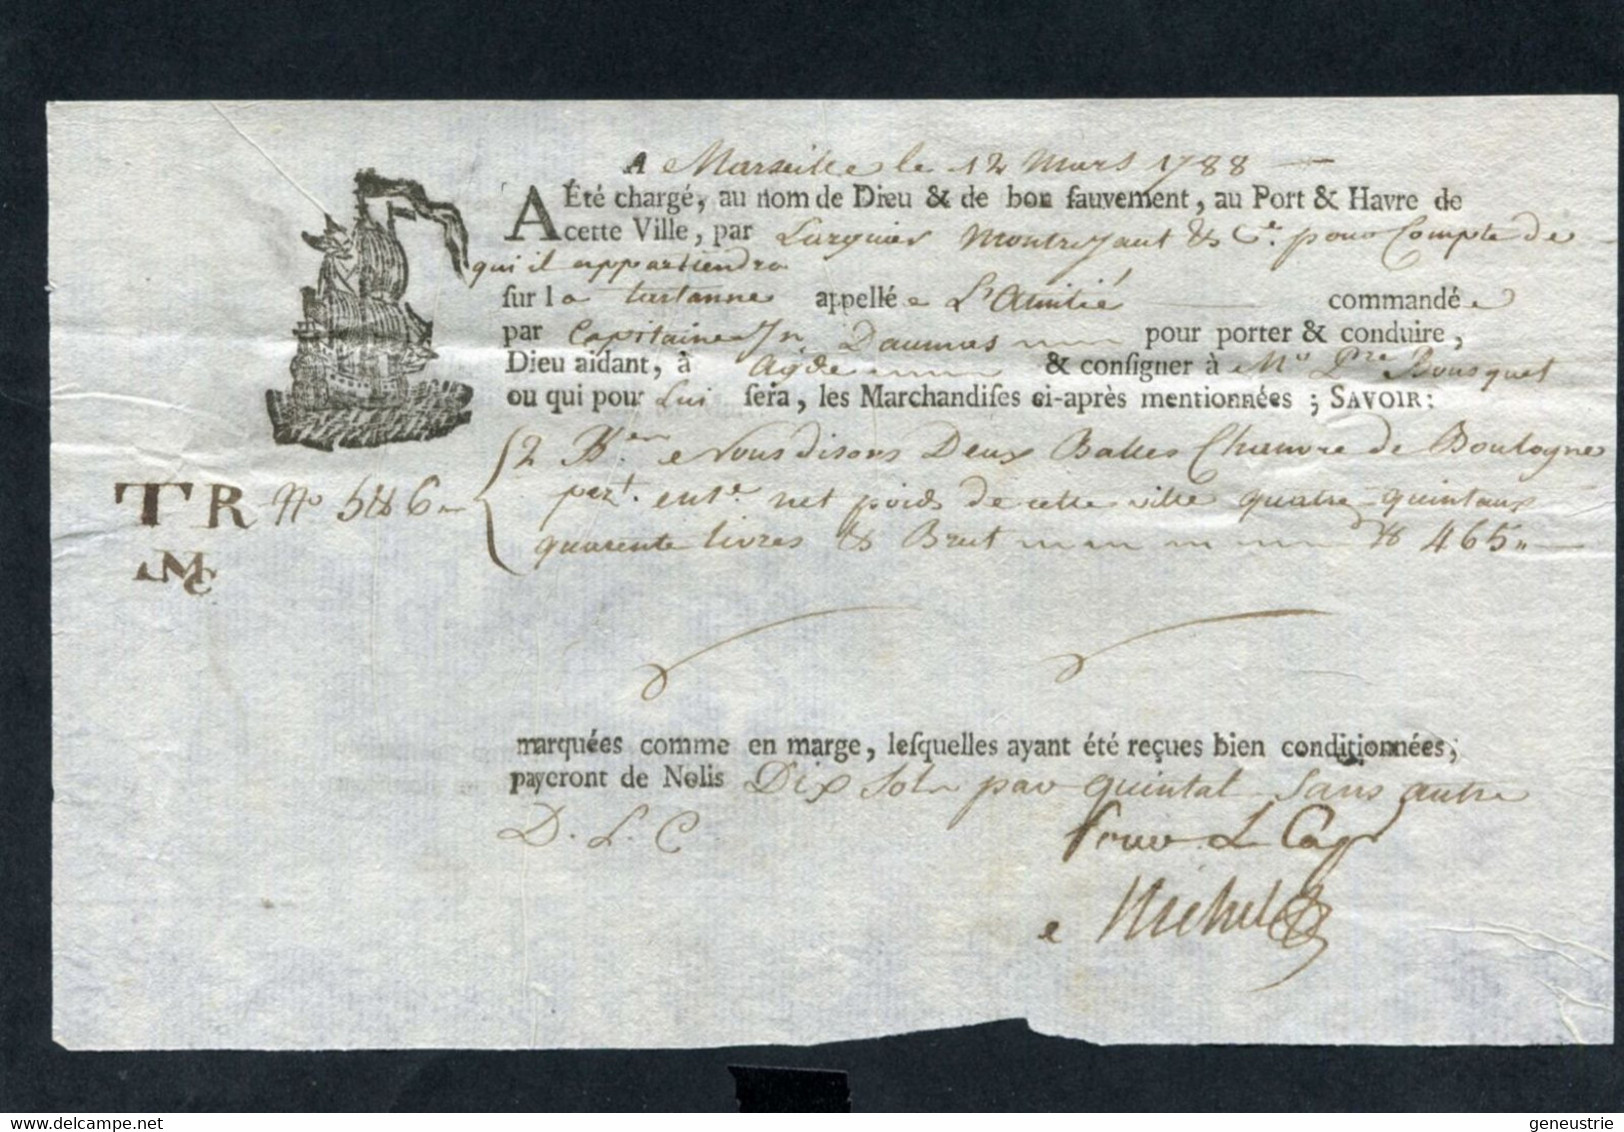 A Marseille le 12 Mars 1788
A Été chargé, au nom de Dieu & de bon sauvement, au Port & Havre de
cette Ville, par Lurguier Montrejaut & Cie. pour Compte de
qui il appartiendra
sur la tartanne appellée L'Amitié commandée
par Capitaine Jn Daumas pour porter & conduire,
Dieu aidant, à Agde & consigner à Mr Pre Bousquet
ou qui pour Lui sera, les Marchandises ci-après mentionnées ; SAVOIR :
2 Bes Nous disons Deux Balles Chanvre de Boulogne
TR No 5 & 6
pest. ente. net poids de cette ville quatre quintaux
quarente livres & Brut 465
MC
marquées comme en marge, lesquelles ayant été reçues bien conditionnées,
payeront de Nolis Dix Sols par quintal sans autre
D. L. C
Pour Le Capne
Michel
www.delcampe.net
geneustrie